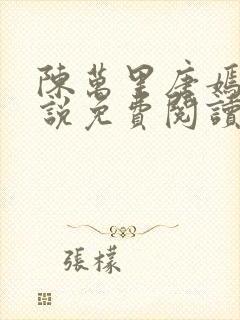 陳萬里唐嫣
說免費閱讀
張檬